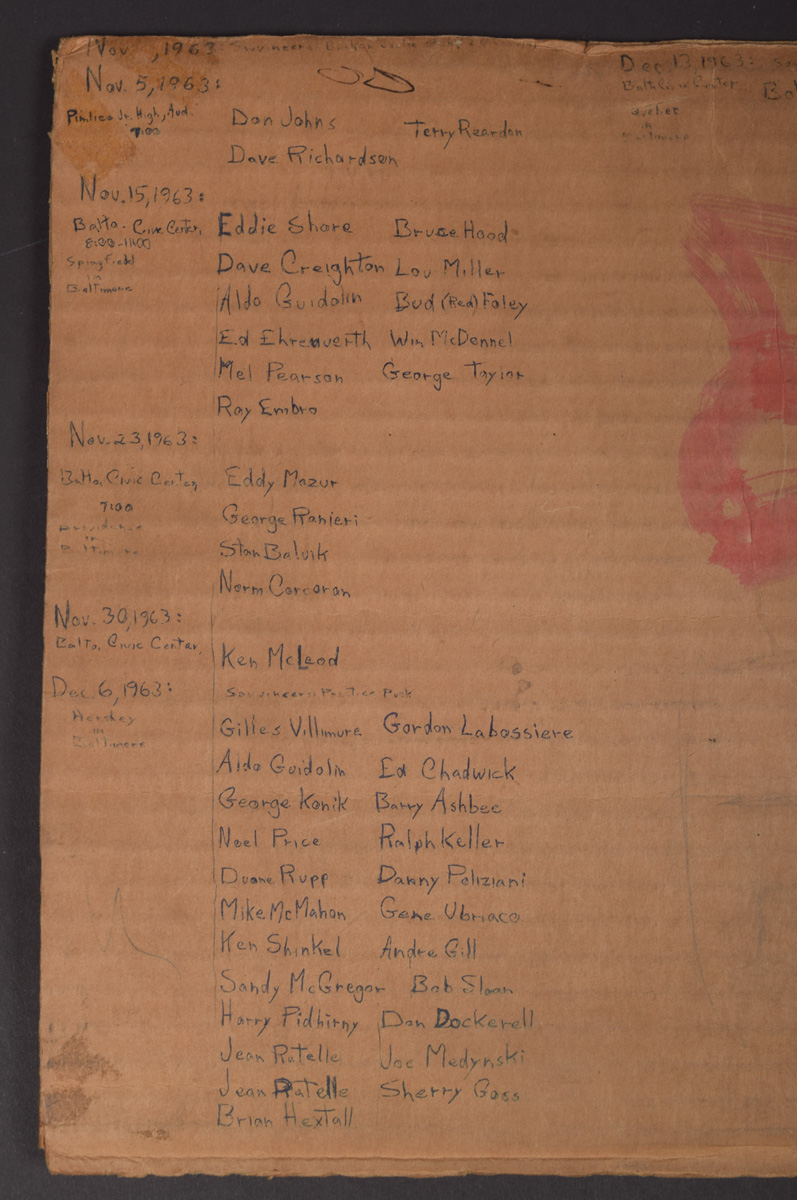 Nov. ,1963:
Nov. 5, 1963:
Pimlico Jr. High, Aud.
7:00
Don Johns Terry Reardon
Dave Richardson
Nov. 15, 1963:
Balto. Civic Center,
8:00-11:00
Springfield
in
Baltimore
Eddie Shore Bruce Hood
Dave Creighton Lou Miller
Aldo Guidolin Bud (Red) Foley
Ed Ehrenverth Win McDonnel
Mel Pearson George Taylor
Ray Embro
Nov. 23, 1963:
Balto, Civic Center,
7:00
Providence
in
Baltimore
Eddy Mazur
George Ranieri
Stan Baluik
Norm Corcoran
Nov. 30, 1963:
Balto, Civic Center,
Ken McLeod
Dec. 6, 1963:
Hershey
in
Baltimore
Souveneer: Practice Puck
Gilles Villimure Gordon Labossiere
Aldo Guidolin Ed Chadwick
George Konik Barry Ashbee
Noel Price Ralph Keller
Duane Rupp Danny Poliziani
Mike McMahon Gene Ubriaco
Ken Shinkel Andre Gill
Sandy McGregor Bob Sloan
Harry Pidhirny Don Dockerell
Jean Ratelle Joe Medynski
Jean Ratelle Sherry Goss
Brian Hextall
Dec. 13, 1963:
Baltimore Center
Quebec
in
Baltimore